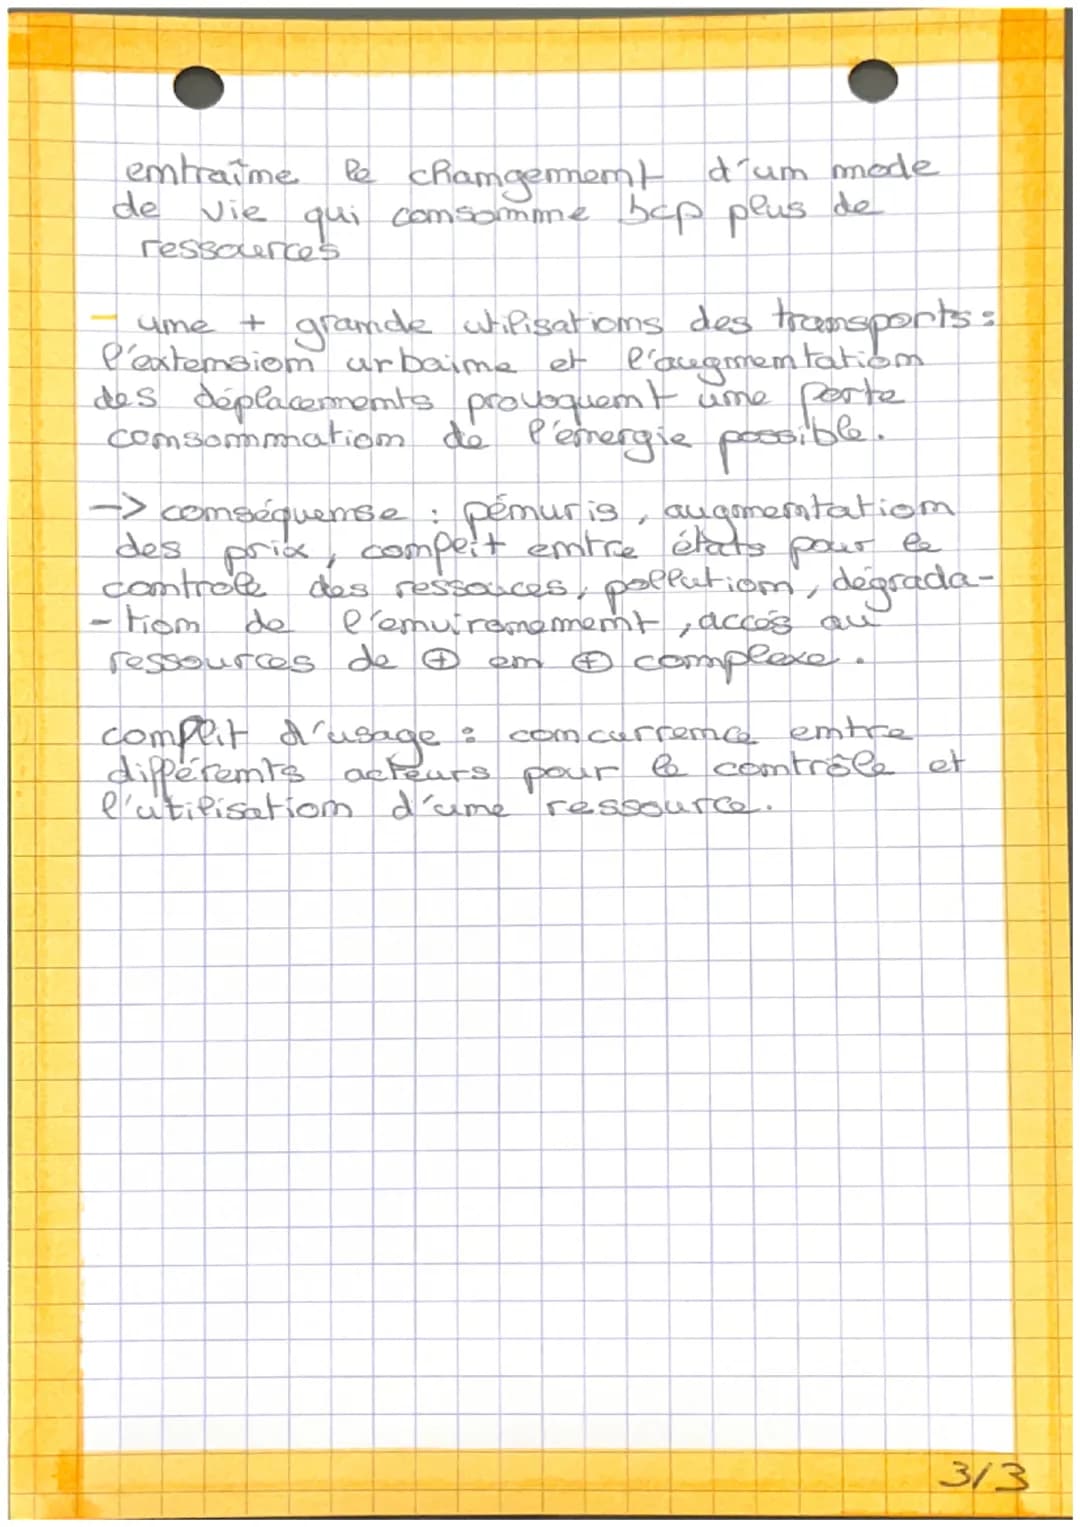 entraîne le changement d'un mode
de vie qui consomme bcp plus de
ressources
- une + grande utilisations des transports :
l'extension urbaine et l'augmentation
des déplacements provoquent une forte
consommation de l'énergie possible.
-> conséquense : pénuris, augmentation
des prix, conflit entre états pour le
controle des ressources, pollution, dégrada-
-tion de l'environnement, accès au
ressources de ⊕ en ⊕ complexe.
conflit d'usage : concurrence entre
différents acteurs pour le contrôle et
l'utilisation d'une ressource.
3/3